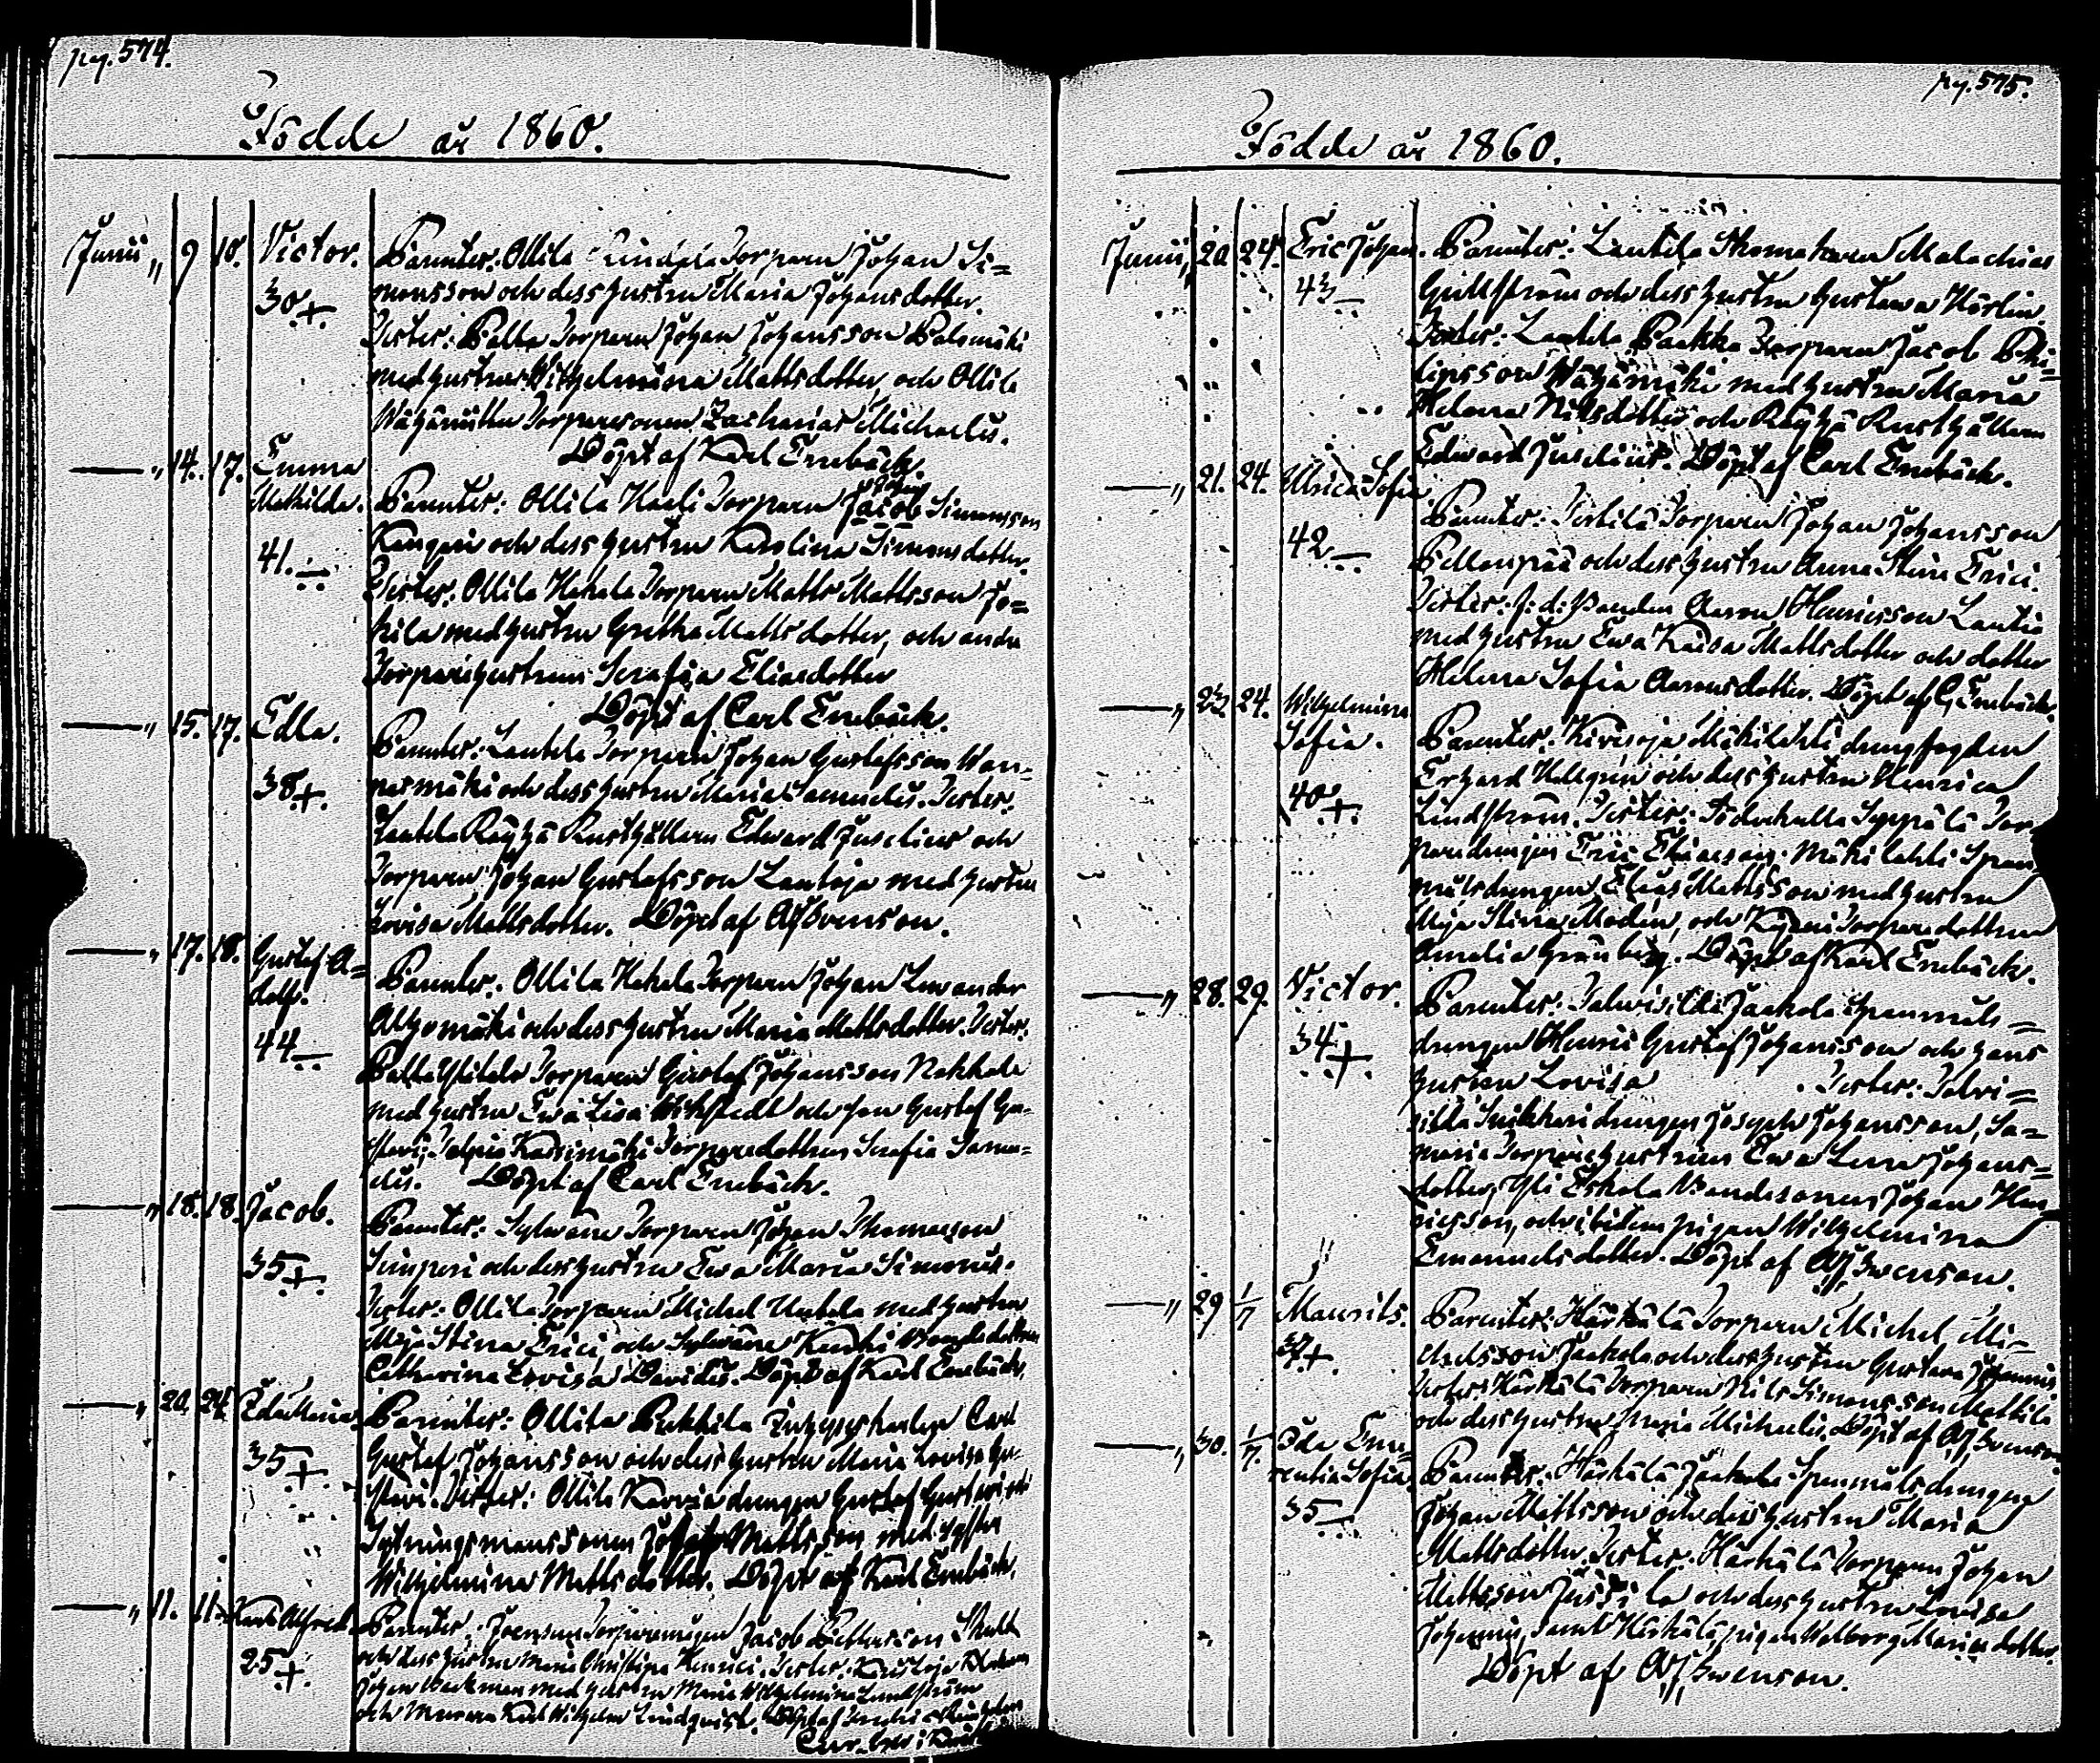 pg. 574.
Födde år 1860.
Junii „ 9 10. Victor. Parenter: Ollila Torparen Johan Si=
30+. monsson och dess hustru Maria Johansdotter.
Tester: Palla Torparen Johan Johansson Palomäki
med hustru Wilhelmina Mattsdotter, och Ollila
Torparesonen Zacharias Michaelis.
Döpt af Karl Enebäck.
— „ 14. 17. Emma
Mathilda. Parenter: Ollila Torparen Jacob Simonsson
41.— och dess hustru Karolina Simonsdotter.
Tester: Ollila Hakala Torparen Matts Mattsson Jo=
kila med hustru Gretha Mattsdotter, och andra
Torparehustrun Serafia Eliasdotter
Döpt af Carl Enebäck.
— „ 15. 17. Edla. Parenter: Lautela Torparen Johan Gustafsson Wan=
38+. märki och dess hustru Maria Samuelis. Tester:
Lautela Röyhä Rusthållaren Edward Juselius och
Torparen Johan Gustafsson Lautoja med hustru
Lovisa Mattsdotter. Döpt af Swenson.
— „ 17. 18. Gustaf A=
dolf. Parenter: Ollila Hakala Torparen Johan Lewander
44— Alhomäki och dess hustru Maria Mattsdotter. Tester:
Palla Torparen Gustaf Johansson Nokkala
med hustru Ewa Lisa och son Gustaf Gu=
stavi, Torparedottren Serafia Samu=
elis. Döpt af Carl Enebäck.
— „ 18. 18. Jacob. Parenter: Sylwäne Torparen Johan Thomasson
35+. Simperi och dess hustru Ewa Maria Simonis.
Tester: Ollila Torparen Michel Untela med hustru
Maja Stina Erici, och Sylwäne
Catharina Lovisa Davidis. Döpt af Karl Enebäck.
— „ 20. 24. Eda Maria. Parenter: Ollila Pukkila Carl
35+. Gustaf Johansson och dess hustru Maria Lovisa Gu=
stavi. Tester: Ollila drängen Gustaf Gustavi och
Sytningsmanssonen Mattsson med syster
Wilhelmina Mattsdotter. Döpt af Karl Enebäck.
— „ 11. 11. Karl Alfred. Parenter: Jacob
25+. och dess hustru Maria Christina Henrici. Tester: Karisloja
Johan med hustru Maria Wilhelmina Lundström
och Karl Wilhelm Lindqvist.
pg. 575.
Födde år 1860.
Junii „ 20 24. Eric Johan. Parenter: Lautela Skomakaren Malachias
43— Gullström och dess hustru Gustawa Hörlin.
Tester: Lautela Paakka Torparen Jacob Phi=
lipsson Wähämäki med hustru Maria
Helena Nilsdotter och Röyhä Rusthållaren
Edward Juselius. Döpt af Carl Enebäck.
— „ 21. 24. Ulrica Sofia. Parenter: Torparen Johan Johansson
42— Pellonpää och dess hustru Anna Stina Erici.
Tester: f: d: Bonden Aaron Henricsson Lautia
med hustru Ewa Kaisa Mattsdotter och dotter
Helena Sofia Aaronsdotter. Döpt af C. Enebäck.
— „ 23. 24. Wilhelmina
Sofia. Parenter: Kivisoja Mäkilahti drengfogden
40+. Erhard Hellgrén och dess hustru Henrica
Lindström. Tester: Torparedrengen Eric Eliasson. Mäkilahti Span=
målsdrengen Elias Mattsson med hustru
Maja Stina Modén, och Torparedottren
Amalia Grönberg. Döpt af Karl Enebäck.
— „ 28. 29. Victor. Parenter: Talvisilta Jaakola Spannmåls=
34+. drengen Henric Gustaf Johansson och hans
hustru Lovisa . Tester: Talvi=
silda drengen Joseph Johansson, Sa=
maria Torparehustrun Ewa Lena Johans=
dotter, Yli Eskola Bondesonen Johan Hen=
ricsson, och ibidem pigan Wilhelmina
Emanuelsdotter. Döpt af Swenson.
— „ 29 1/7 Maurits. Parenter: Härkälä Torparen Michel Mi=
37+. chelsson Jaakola och dess hustru Gustava Johannis
Tester: Härkälä Torparen Nils Simonsson Mattila
och dess hustru Maria Michaelis. Döpt af Swenson.
— „ 30. 1/7. Ida Emé=
rentia Sofia. Parenter: Härkälä Jaakola Spannmålsdrengen
35— Johan Mattsson och dess hustru Maria
Mattsdotter. Tester: Härkälä Torparen Johan
Mattsson Jussila och dess hustru Lovisa
Johannis, samt Härkälä pigan Walborg Mariae dotter.
Döpt af Swenson.